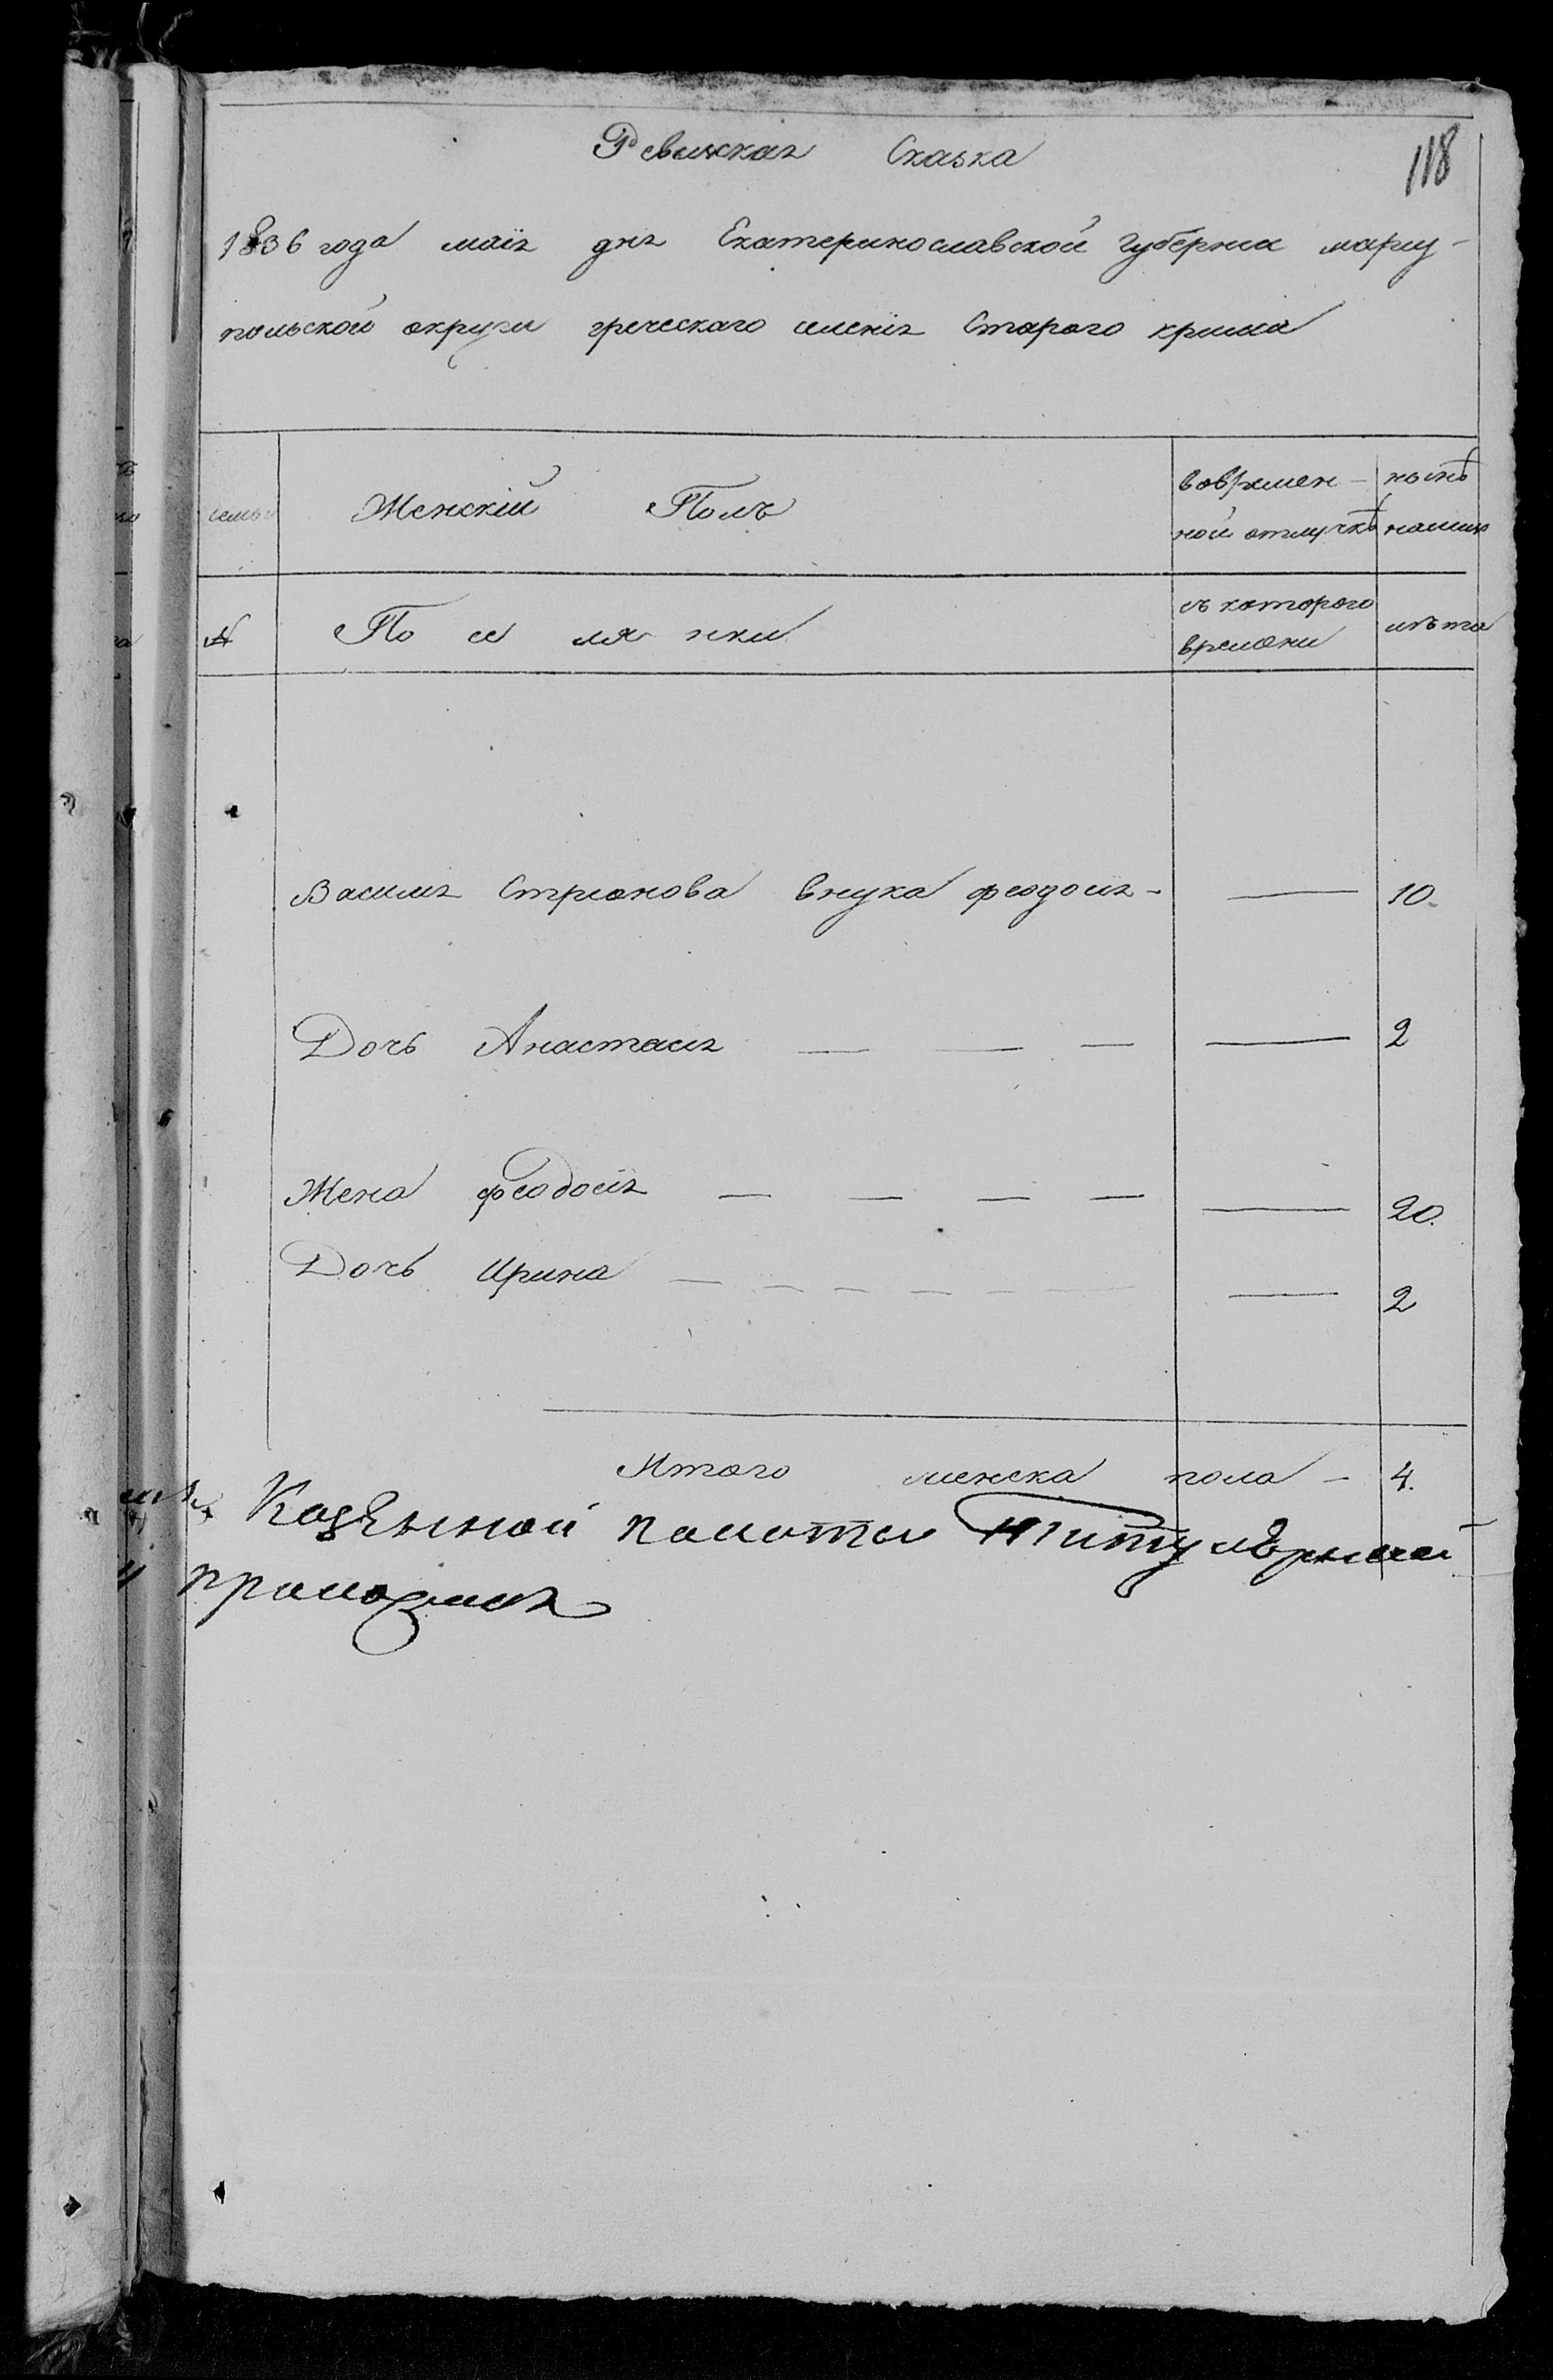 118
Ревижская Сказка
1836 года маія дня Екатеринославской губернии мариу-
польской округи греческаго селенія Старого крима
семьи
Женскій Полъ
вовремен-
ной отлучкѣ
нынѣ
№
По се ля нки
съ которого
времени
лѣта
Василия Стрионова внука феодосия - — 10.
Дочь Анастасия — — — — 2
Жена феодосія — — — — — 20.
Дочь Ирина — — — — — — — 2
Итого женска пола - 4.
Казенной палаты Титулярный